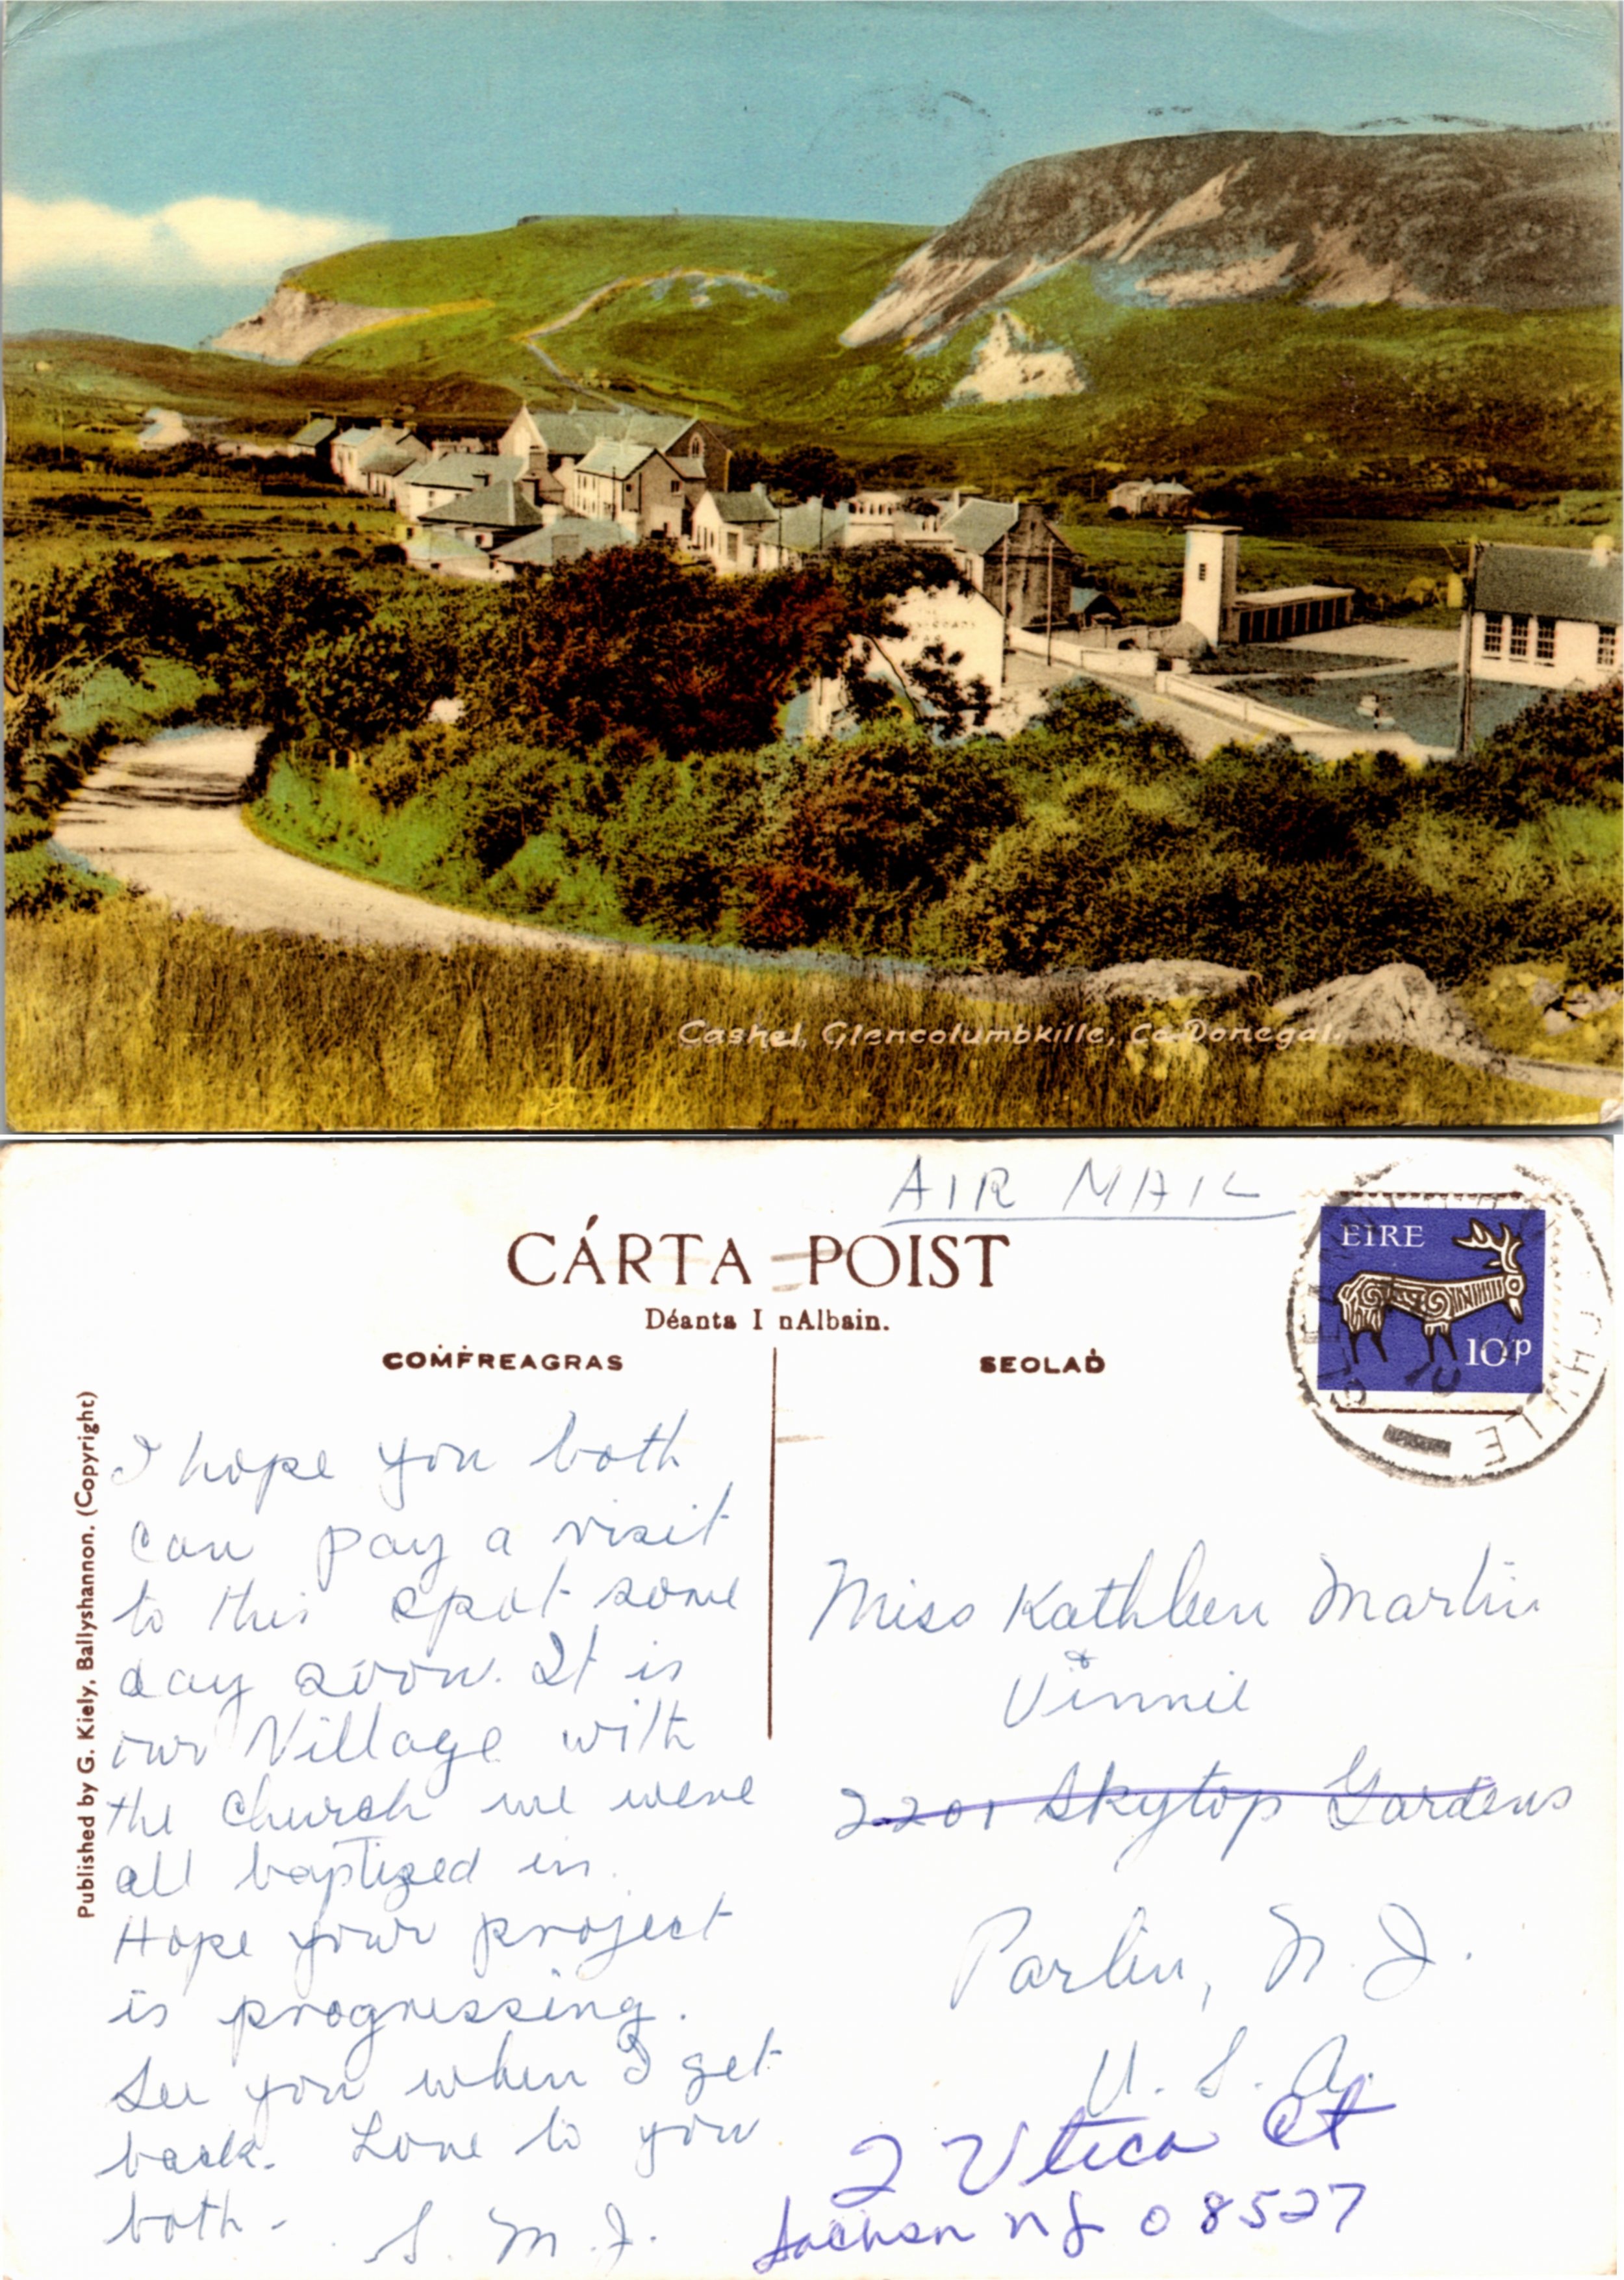 Cashel, Glencolumbkille, Co. Donegal.
AIR MAIL
CÁRTA POIST
Déanta I nAlbain.
COṀḞREAGRAS
SEOLAḊ
EIRE
10p
Published by G. Kiely, Ballyshannon. (Copyright)
I hope you both
can pay a visit
to this spot some
day soon. It is
our Village with
the church we were
all baptized in.
Hope your project
is progressing.
See you when I get
back. Love to you
both -
S. M. J.
Miss Kathleen Martin
&
Vinnie
2201 Skytop Gardens
Parlin, N. J.
U. S. A.
2 Utica Ct
Jackson NJ 08527